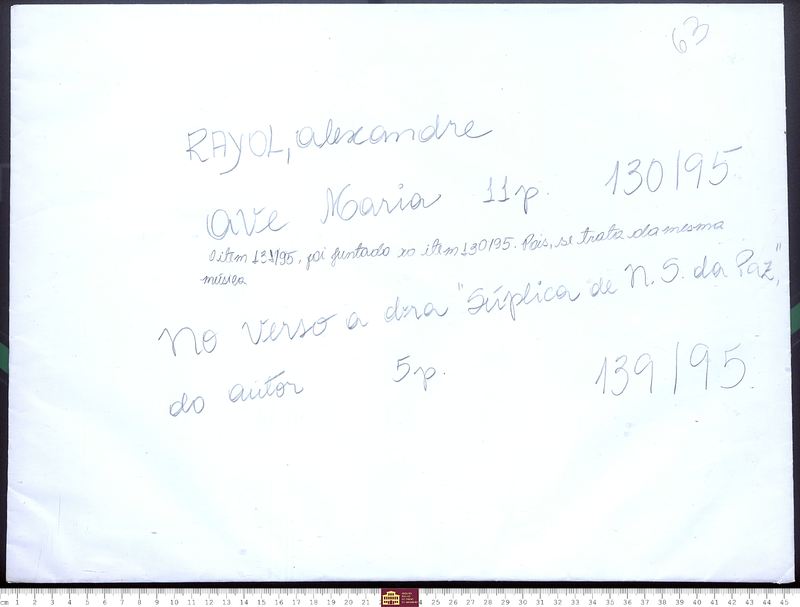 63
RAYOL, alexandre
ave Maria 11p. 130/95
O item 131/95, foi juntado ao item 130/95. Pois, se trata da mesma
música
No verso a obra "Súplica de N. S. da Paz",
do autor 5p. 139/95
cm 1 2 3 4 5 6 7 8 9 10 11 12 13 14 15 16 17 18 19 20 21 24 25 26 27 28 29 30 31 32 33 34 35 36 37 38 39 40 41 42 43 44 45